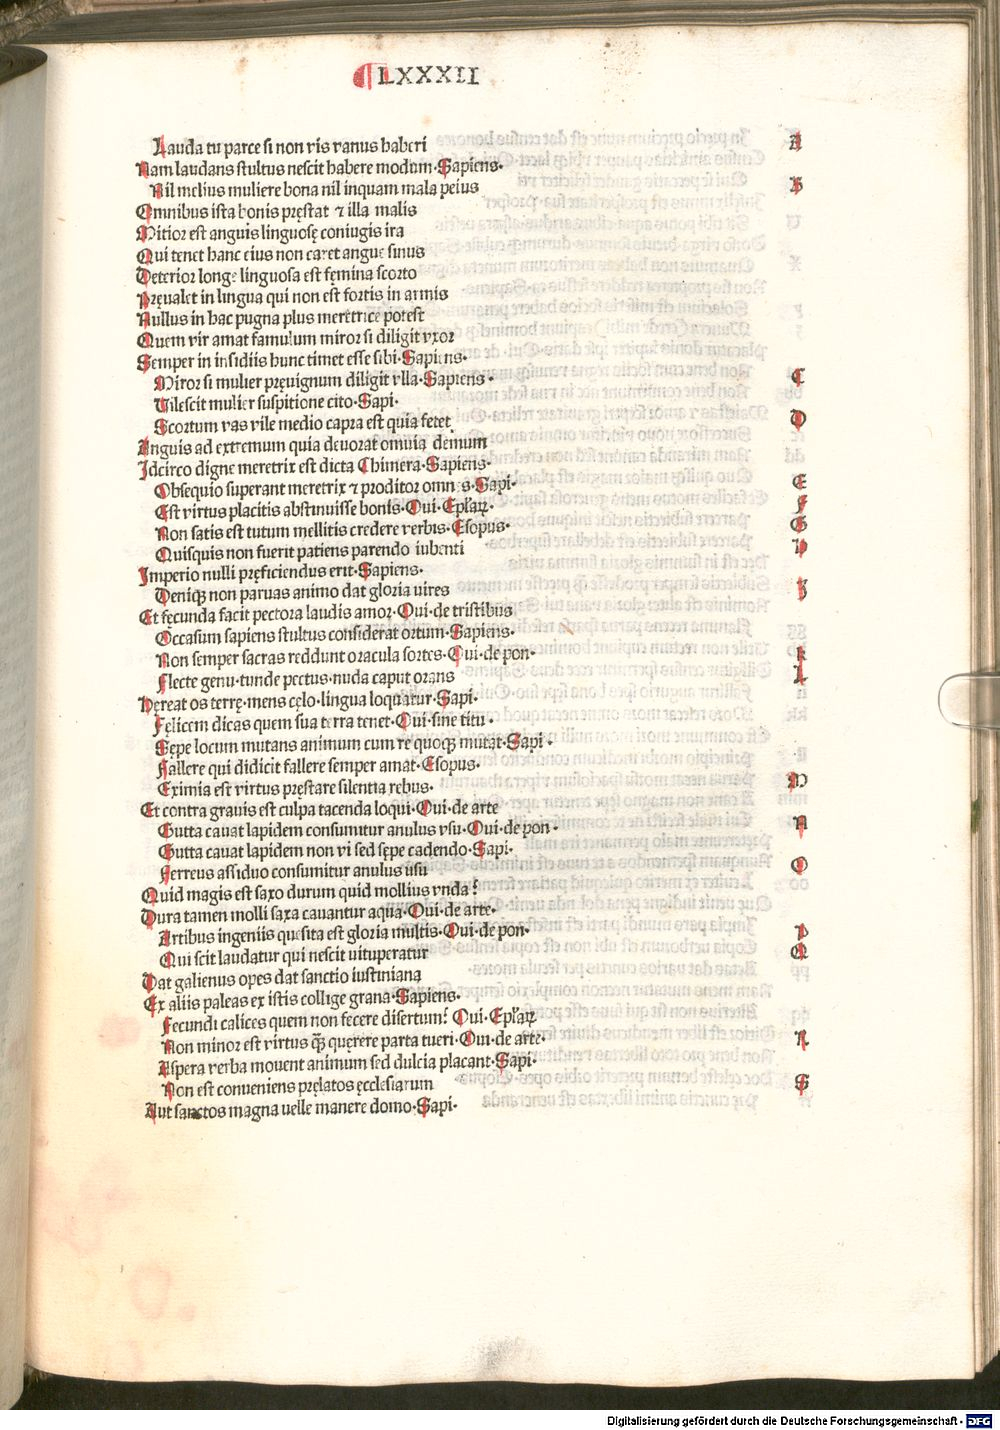 LXXXII
Lauda tu parce si non vis vanus haberi A
Nam laudans stultus nescit habere modum·Sapiens·
Nil melius muliere bona nil inquam mala peius B
Omnibus ista bonis pręstat ⁊ illa malis
Mitior est anguis linguosę coniugis ira
Qui tenet hanc eius non caret angue sinus
Deterior longe linguosa est fęmina scorto
Pręualet in lingua qui non est fortis in armis
Nullus in hac pugna plus meretrice potest
Quem vir amat famulum miror si diligit vxor
Semper in insidiis hunc timet esse sibi·Sapiens·
Miror si mulier pręuignum diligit vlla·Sapiens· C
Vilescit mulier suspitione cito·Sapi·
Scortum vas vile medio capra est quia fetet D
Anguis ad extremum quia deuorat omnia demum
Idcirco digne meretrix est dicta Chimera·Sapiens·
Obsequio superant meretrix ⁊ proditor omnes·Sapi· E
Est virtus placitis abstinuisse bonis·Oui·Epłaꝝ· F
Non satis est tutum mellitis credere verbis·Esopus· G
Quisquis non fuerit patiens parendo iubenti H
Imperio nulli pręficiendus erit·Sapiens·
Deniqꝫ non paruas animo dat gloria uires I
Et fęcunda facit pectora laudis amor·Oui·de tristibus
Occasum sapiens stultus considerat ortum·Sapiens·
Non semper sacras reddunt oracula sortes·Oui·de pon· K
Flecte genu·tunde pectus·nuda caput orans L
Hereat os terrę·mens cęlo·lingua loquatur·Sapi·
Felicem dicas quem sua terra tenet·Oui·sine titu·
Sępe locum mutans animum cum re quoqꝫ mutat·Sapi·
Fallere qui didicit fallere semper amat·Esopus·
Eximia est virtus pręstare silentia rebus· M
Et contra grauis est culpa tacenda loqui·Oui·de arte
Gutta cauat lapidem consumitur anulus vsu·Oui·de pon· N
Gutta cauat lapidem non vi sed sępe cadendo·Sapi·
Ferreus assiduo consumitur anulus usu O
Quid magis est saxo durum quid mollius vnda?
Dura tamen molli saxa cauantur aqua·Oui·de arte·
Artibus ingeniis quęsita est gloria multis·Oui·de pon· P
Qui scit laudatur qui nescit uituperatur Q
Dat galienus opes dat sanctio iustiniana
Ex aliis paleas ex istis collige grana·Sapiens·
Fecundi calices quem non fecere disertum? Oui·Epłaꝝ
Non minor est virtus qꝫ̃ quęrere parta tueri·Oui·de arte· R
Aspera verba mouent animum sed dulcia placant·Sapi·
Non est conueniens pręlatos ęcclesiarum S
Aut sanctos magna uelle manere domo·Sapi·
Digitalisierung gefördert durch die Deutsche Forschungsgemeinschaft - DFG